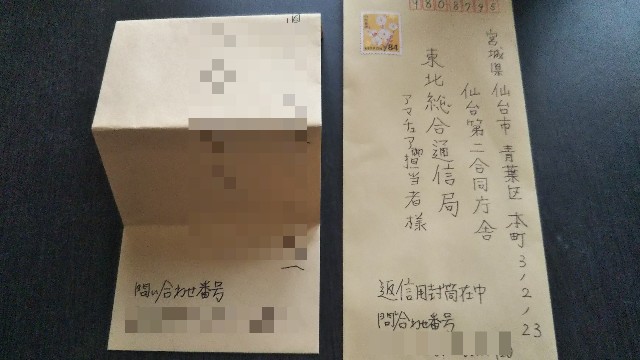 問い合わせ番号
9808795
84
宮城県仙台市青葉区本町3,2,23
仙台第二合同庁舎
東北総合通信局
アマチュア担当者様
返信用封筒在中
問合わせ番号